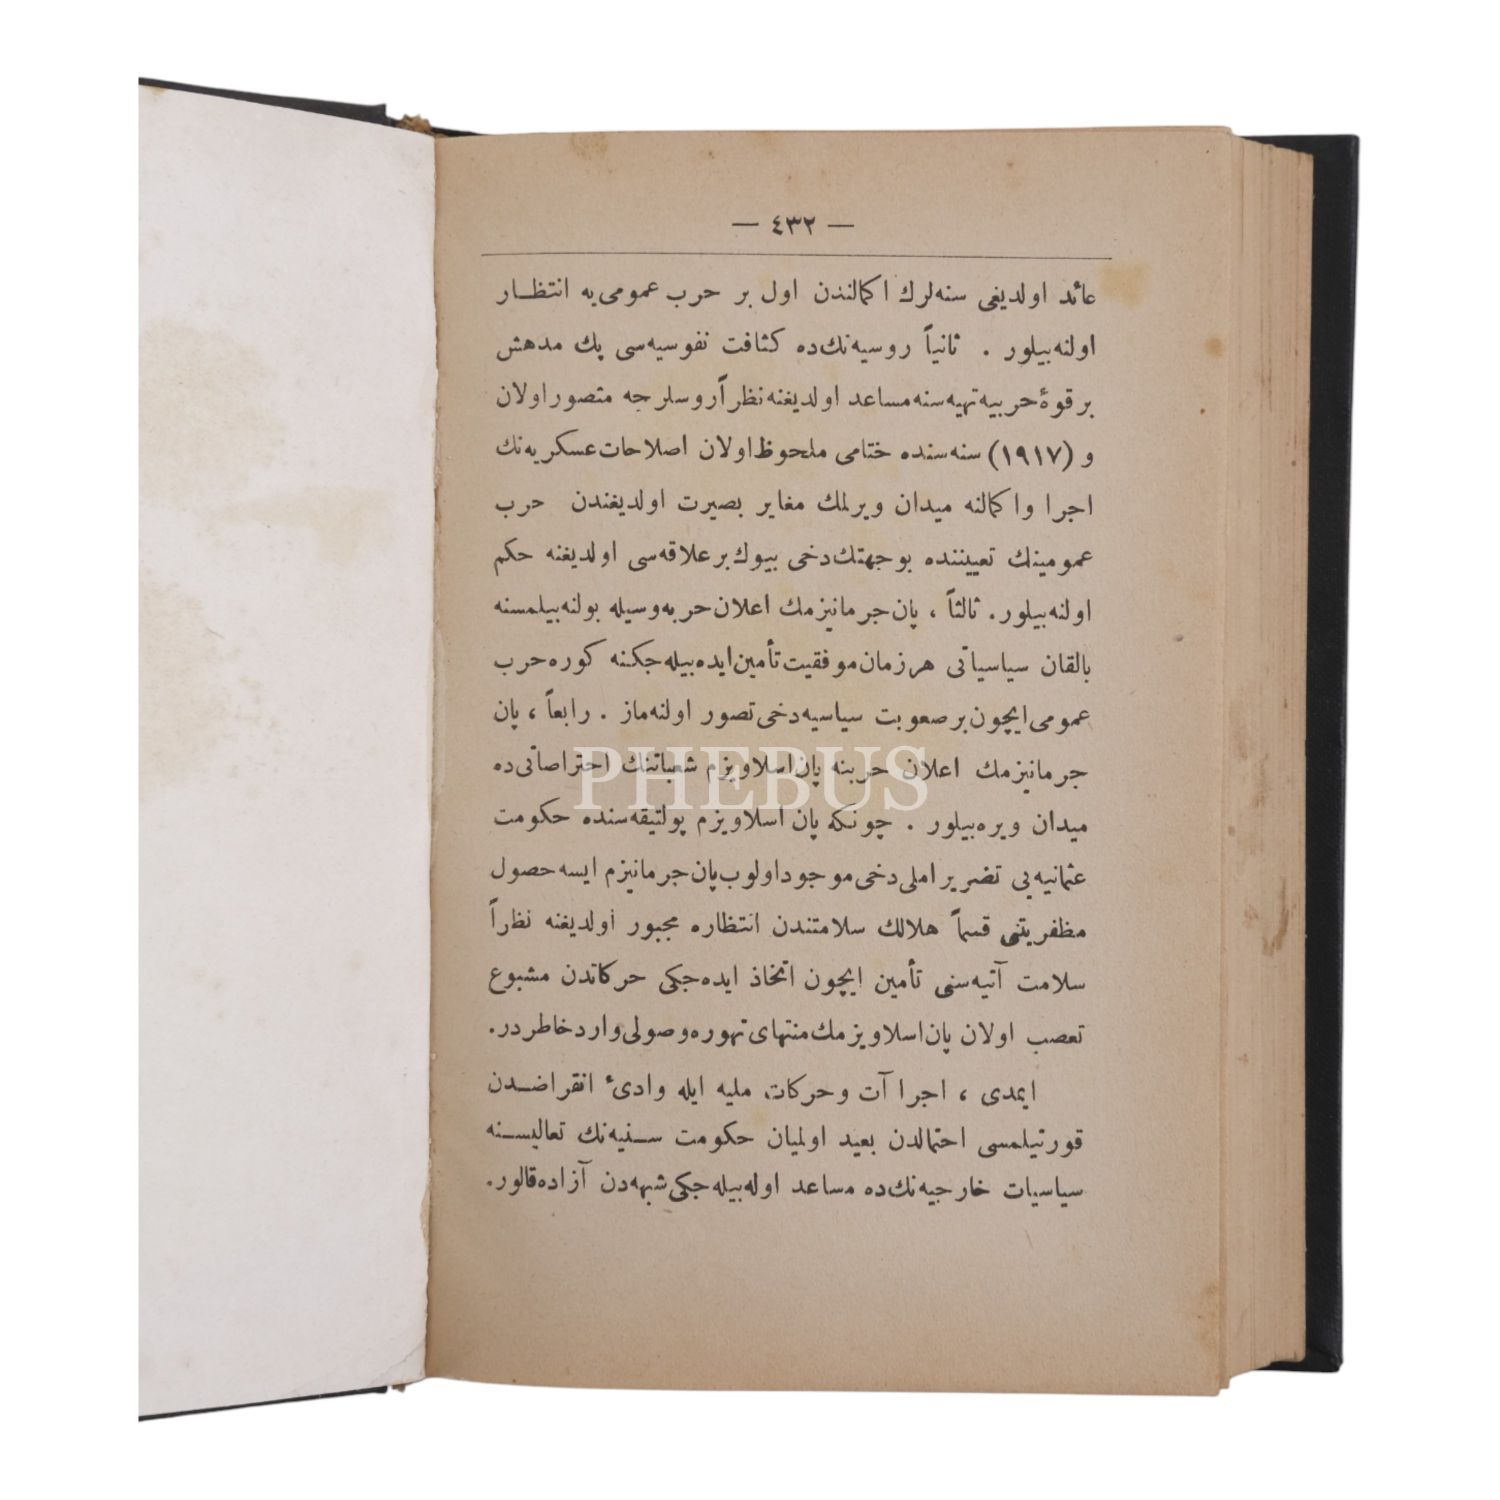 — ٤٣٢ —
عائد اولديغى سنه‌لرك اكمالندن اول بر حرب عمومى‌يه انتظـار
اولنه‌بيلور . ثانياً روسيه‌نك‌ده كثافت نفوسيه‌سى پك مدهش
بر قوۀ حربيه تهيه‌سنه مساعد اولديغنه نظراً روسلرجه متصور اولان
و (١٩١٧) سنه‌سنده ختامى ملحوظ اولان اصلاحات عسكريه‌نك
اجرا واكمالنه ميدان ويرلمك مغاير بصيرت اولديغندن حرب
عمومينك تعييننده بوجهتك دخى بيوك بر علاقه‌سى اولديغنه حكم
اولنه‌بيلور. ثالثاً ، پان جرمانيزمك اعلان حربه وسيله بولنه‌بيلمسنه
بالقان سياسياتى هر زمان موفقيت تأمين ايده‌بيله‌جكنه كوره حرب
عمومى ايچون بر صعوبت سياسيه دخى تصور اولنه‌ماز . رابعاً ، پان
جرمانيزمك اعلان حربنه پان اسلاويزم شعباتنك احتراصاتى ده
ميدان ويره‌بيلور . چونكه پان اسلاويزم پولتيقه‌سنده حكومت
عثمانيه‌يى تضرير املى دخى موجود اولوب پان جرمانيزم ايسه حصول
مظفريتنى قسماً هلالك سلامتندن انتظاره مجبور اولديغنه نظراً
سلامت آتيه‌سنى تأمين ايچون اتخاذ ايده‌جكى حركاتدن مشبوع
تعصب اولان پان اسلاويزمك منتهاى تهوره وصولى وارد خاطردر.
ايمدى ، اجراآت وحركات مليه ايله وادئ انقراضـدن
قورتيلمسى احتمالدن بعيد اولميان حكومت سـنيه‌نك تعاليسـنه
سياسيات خارجيه‌نك‌ده مساعد اوله‌بيله‌جكى شبهه‌دن آزاده قالور.
PHEBUS